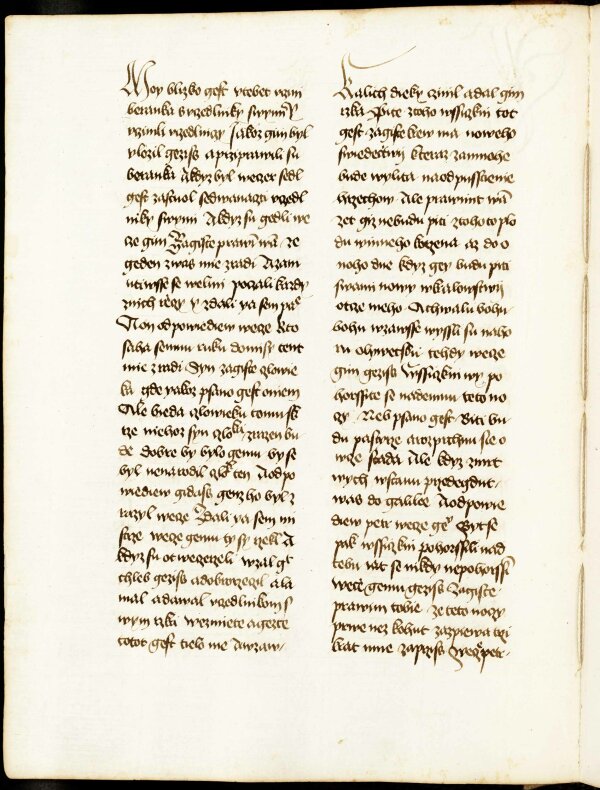 Moy blizko gest vtebet vczini
beranka svczedlniky swymi
vczinili vczedlnyczy Jakoz gim byl
vlozil geziss a prziprawili su
beranka A kdyz byl weczer sedl
gest zastuol sedwanaczti vczedl
niky swymi A kdyz su gedli we
cze gim zagiste prawi wa ze
geden zwas mie zradi A zam
utiwsse se welmi poczali kazdy
znich rzeczy y zdali ya sem pa
On odpowiediew wecze kto
saha semnu ruku do missy tent
mie zradi Syn zagiste czlowie
ka gde yakoz psano gest oniem
Ale bieda czlowieku tomu sk
rze niehoz syn czloka zrazen bu
de dobre by bylo gemu by se
byl nenarodil ten A odpo
wediew gidass genz ho byl z
razyl wecze zdali ya sem mi
strze wecze gemu ty sy rzekl A
kdyz su ot weczerzeli wzal gt
chleb geziss a dobrorzeczil a la
mal a dawal vczedlnikom s
wym rzka wezmiete a gezte
totot gest tielo me A wzaw
kalich dieky czinil a dal gim
rzka Pite ztoho wssiczkni tot
gest zagiste krew ma noweho
swiedectwy kteraz zamnohe
bude wylita naodpusstienie
hrziechow Ale prawimt wam
zet giz nebudu piti ztohoto plo
du winneho korzena az do o
noho dne kdyz gey budu piti
swami nowy wkralowstwy
otcze meho A chwalu bohu
bohu wzawsse wyssli su naho
ru olywetsku tehdy wecze
gim geziss wssiczkni wy po
horssite se nademnu teto no
czy Neb psano gest Biti bu
du pastyrze a rozprchnu sie o
wcze stada Ale kdyz zmrt
wych wstanu przedegdut
was do galilee A odpowie
diew petr wecze Byt se
pak wssiczkni pohorssili nad
tebu iat se nikdy nepohorssi
wecze gemu geziss zagiste
prawim tobie ze teto noczy
prwe nez kohut zazpiewa tri
krat mne zaprziss wecze petr